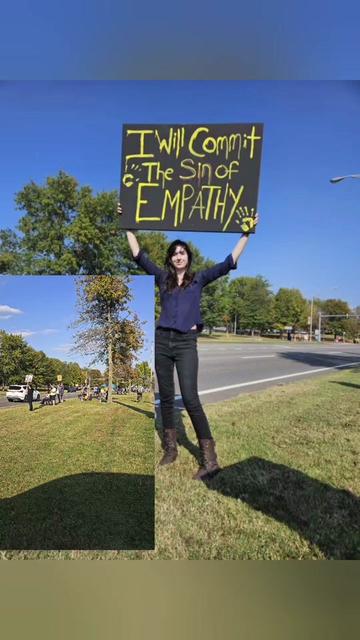 I Will Commit
The Sin of
EMPATHY